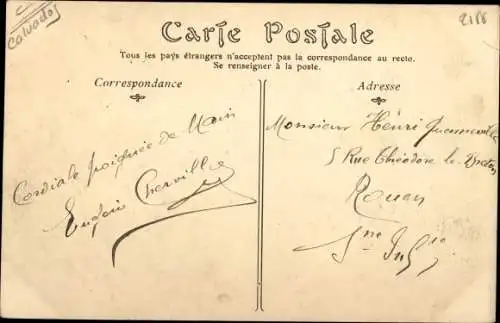 Calvados
2186
Carte Postale
Tous les pays étrangers n'acceptent pas la correspondance au recto.
Se renseigner à la poste.
Correspondance
Cordiale poignée de Main
Eugène
Adresse
Monsieur Henri
5 Rue Théodore le Breton
Rouen
Sne Infre